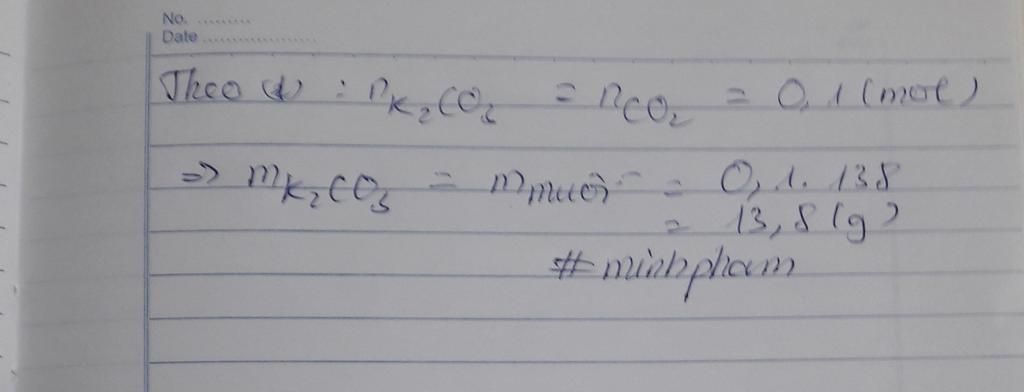 No. .........
Date ...................
Theo (1) : nK₂CO₃ = nCO₂ = 0,1 (mol)
=> mK₂CO₃ = mmuối = 0,1. 138
= 13,8 (g)
# minhpham